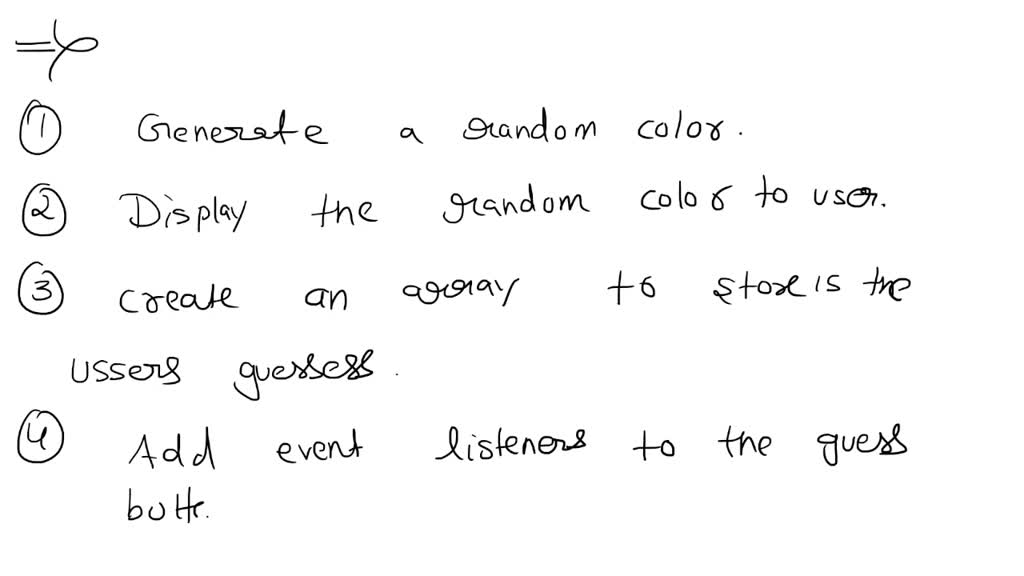 ① Generate a random color.
② Display the random color to user.
③ create an array to store is the
ussers guessess.
④ Add event listeners to the guess
butt.